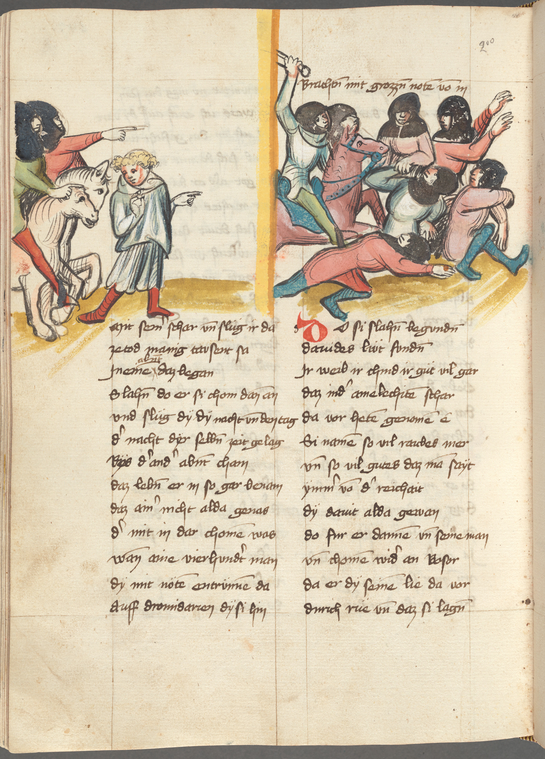 Mit sein schar vn̄ slůg ir da
ze tod manig tausent sa
In eine abent daz began
Slahn̄ do er si chom dar an
vnd slůg dy dy nacht vn̄ den tag
d' nacht dyer selbn̄ zeit gelag
Byz d' and' abnt cham
daz lebn̄ er in so gar benam
daz ain' nicht alda genas
d' mit in dar chomē was
wan aine vierhundt' man
dy mit nōte entrūnē da
Auff dromidarien dy si hin
Brachtn̄ mit grozzn̄ note vo in
Do si slahn̄ begundn̄
dauides lüwt fundn̄
Ir weib ir chind ir gůt vil gar
daz in d' amelechite schar
da vor hete genomē e
Si namē so vil raubes mer
vn̄ so vil gutes daz ma sayt
ymm' vo d' reichait
dy dauit alda gewan
do fur er danne vn̄ seine man
vn̄ chome wid' an Bosor
da er dy seine lie da vor
durch rue vn̄ daz si lagn̄